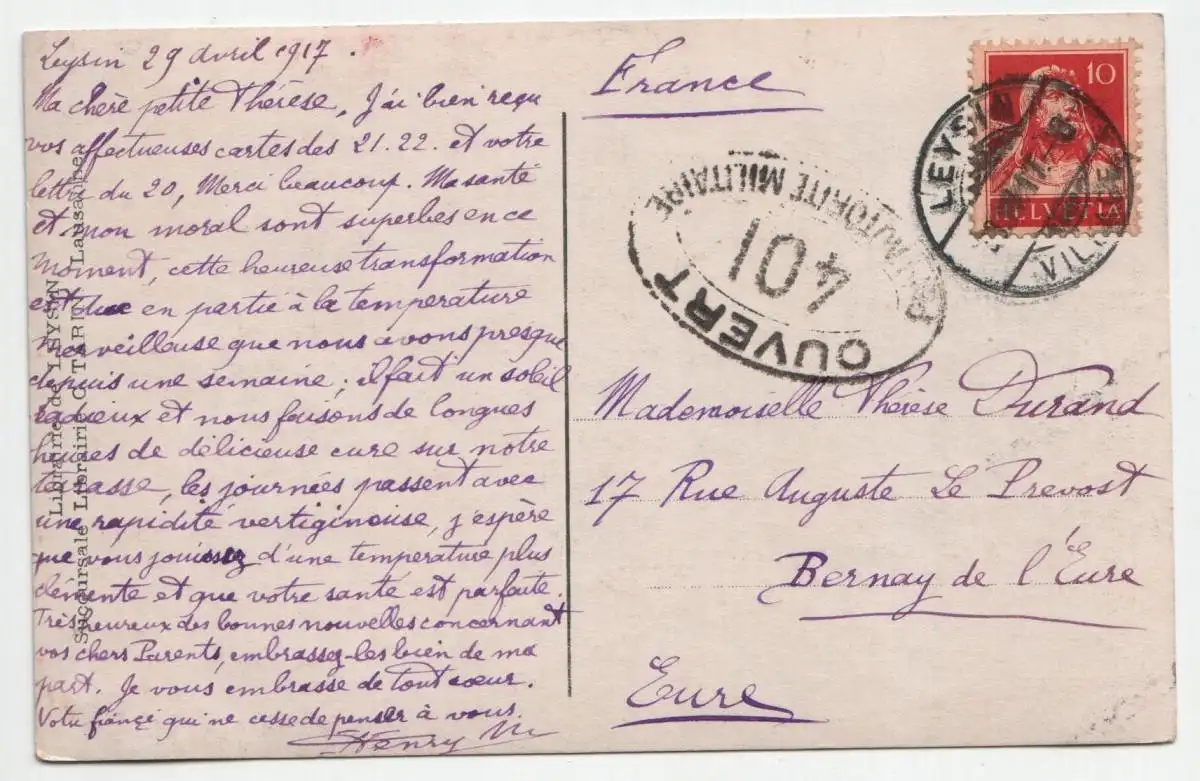 Leysin 29 avril 1917.
Ma chère petite Thérèse, J'ai bien reçu
vos affectueuses cartes des 21.22. et votre
lettre du 20, Merci beaucoup. Ma santé
et mon moral sont superbes en ce
moment, cette heureuse transformation
est due en partie à la temperature
merveilleuse que nous avons presque
depuis une semaine; il fait un soleil
radieux et nous faisons de longues
heures de délicieuse cure sur notre
terrasse, les journées passent avec
une rapidité vertiginouise, j'espère
que vous jouissez d'une temperature plus
clémente et que votre santé est parfaite.
Très heureux des bonnes nouvelles concernant
vos chers Parents, embrassez-les bien de ma
part. Je vous embrasse de tout cœur.
Votre fiançé qui ne cesse de penser à vous.
Henry
Librairie de LEYSIN
Succursale Librairie C. TARIN Lausanne
France
10
HELVETIA
LEYSIN
OUVERT
401
AUTORITÉ MILITAIRE
Mademoiselle Thérèse Durand
17 Rue Auguste Le Prevost
Bernay de l'Eure
Eure